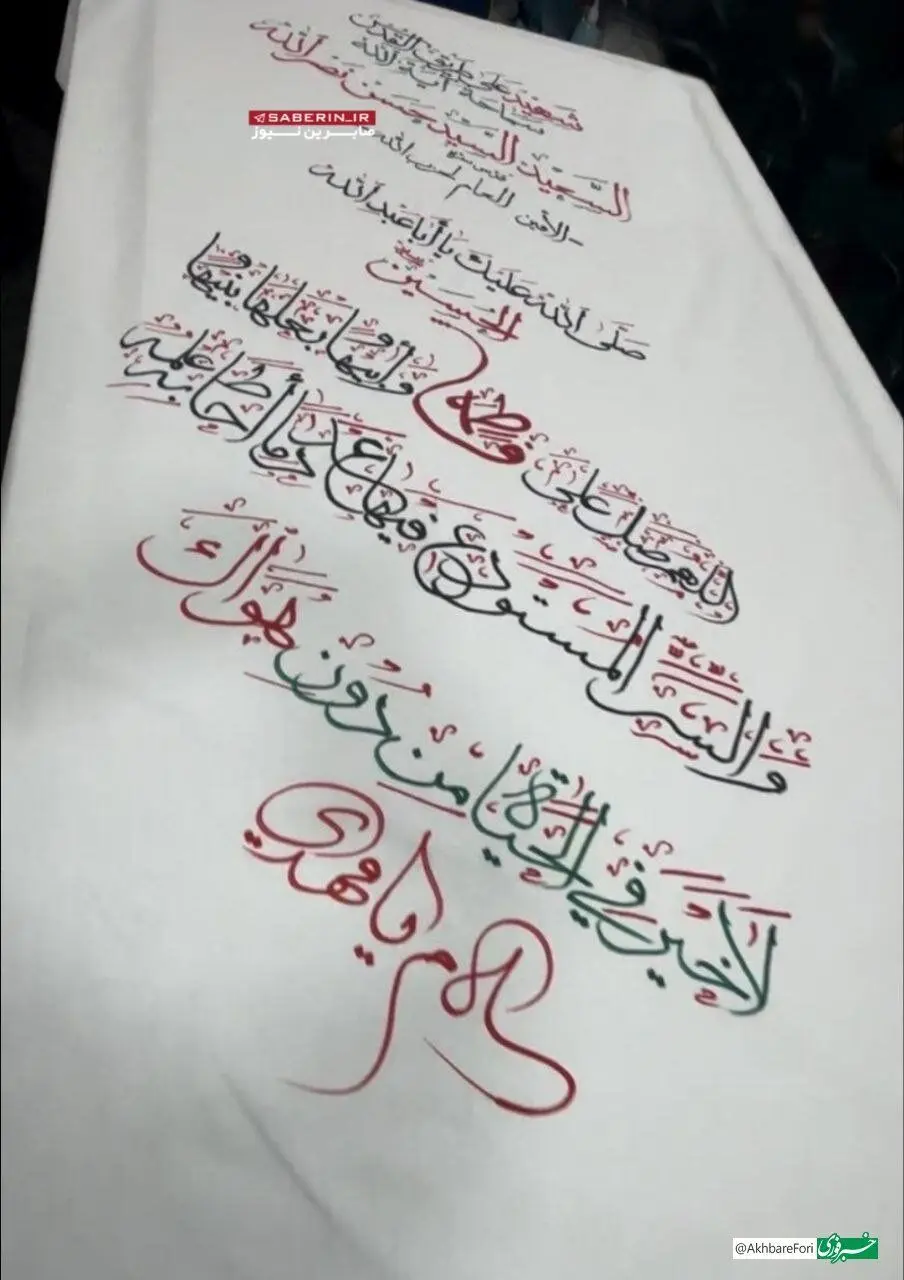 شهيد على طريق القدس
سماحة آية الله
السعيد السيد حسن نصر الله
قدس سره
الأمين العام لحزب الله
صلى الله عليك يا أبا عبد الله
الحسين
اللهم صل على فاطمة وأبيها وبعلها وبنيها
والسر المستودع فيها عدد ما أحاط به علمك
لا خير في الحياة من دون هواك
يا مهدي
SABERIN_IR
صابرين نيوز
@AkhbareFori
خبرفوری